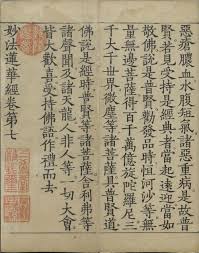 惡瘡膿血水腹短氣諸惡重病是故普
賢若見受持是經典者當起遠迎當如
敬佛說是普賢勸發品時恒河沙等無
量無邊菩薩得百千萬億旋陀羅尼三
千大千世界微塵等諸菩薩具普賢道
佛說是經時普賢等諸菩薩舍利弗等
諸聲聞及諸天龍人非人等一切大會
皆大歡喜受持佛語作禮而去
妙法蓮華經卷第七